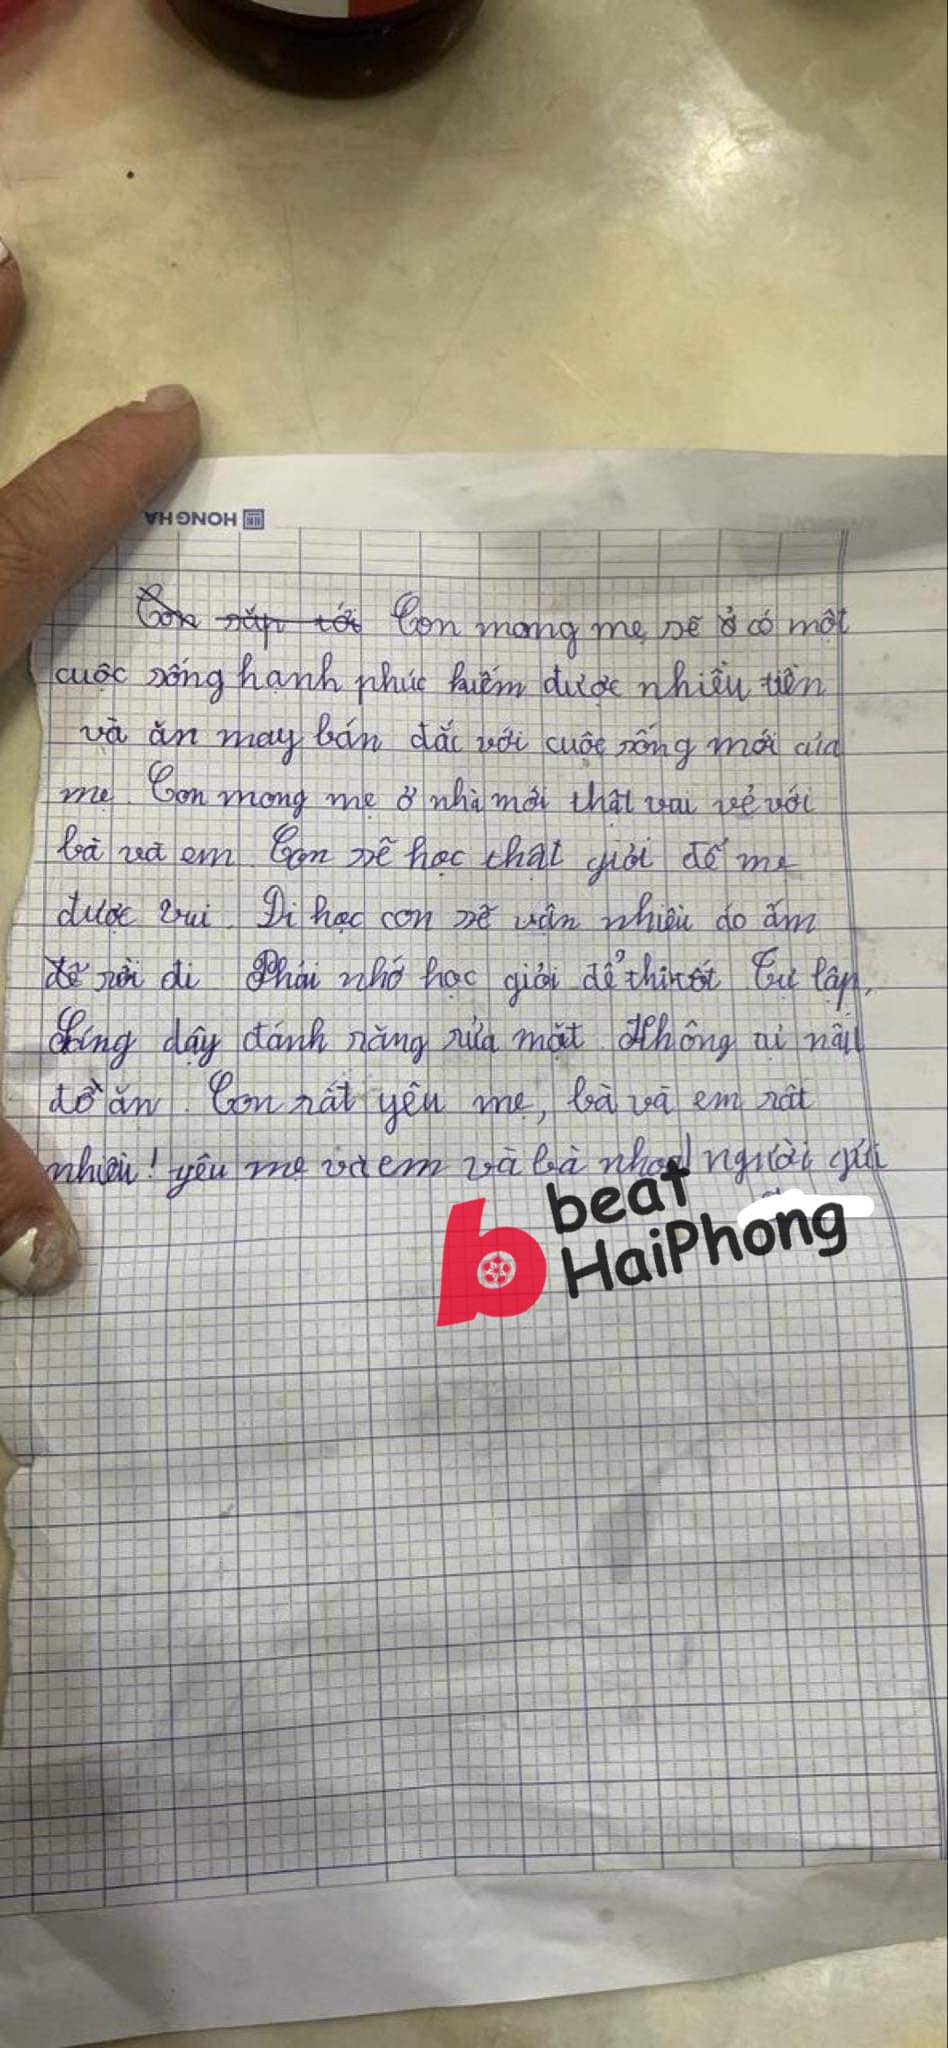 HONG HA
Con sắp tới Con mong mẹ sẽ ở có một
cuộc sống hạnh phúc kiếm được nhiều tiền
và ăn may bán đắc với cuộc sống mới của
mẹ. Con mong mẹ ở nhà mới thật vui vẻ với
bà và em Con sẽ học thật giỏi để mẹ
được vui. Đi học con sẽ vận nhiều áo ấm
để rồi đi Phải nhớ học giỏi để thi tốt Tự lập,
Sáng dậy đánh răng rửa mặt Không ai nấu
đồ ăn. Con rất yêu mẹ, bà và em rất
nhiều! yêu mẹ và em và bà nhoa! người gửi
beat
HaiPhong